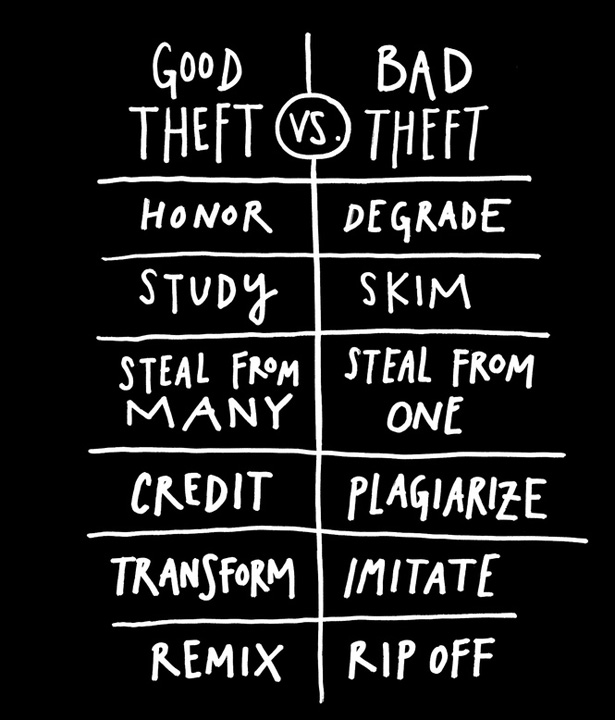 GOOD THEFT VS. BAD THEFT
HONOR DEGRADE
STUDY SKIM
STEAL FROM MANY STEAL FROM ONE
CREDIT PLAGIARIZE
TRANSFORM IMITATE
REMIX RIP OFF